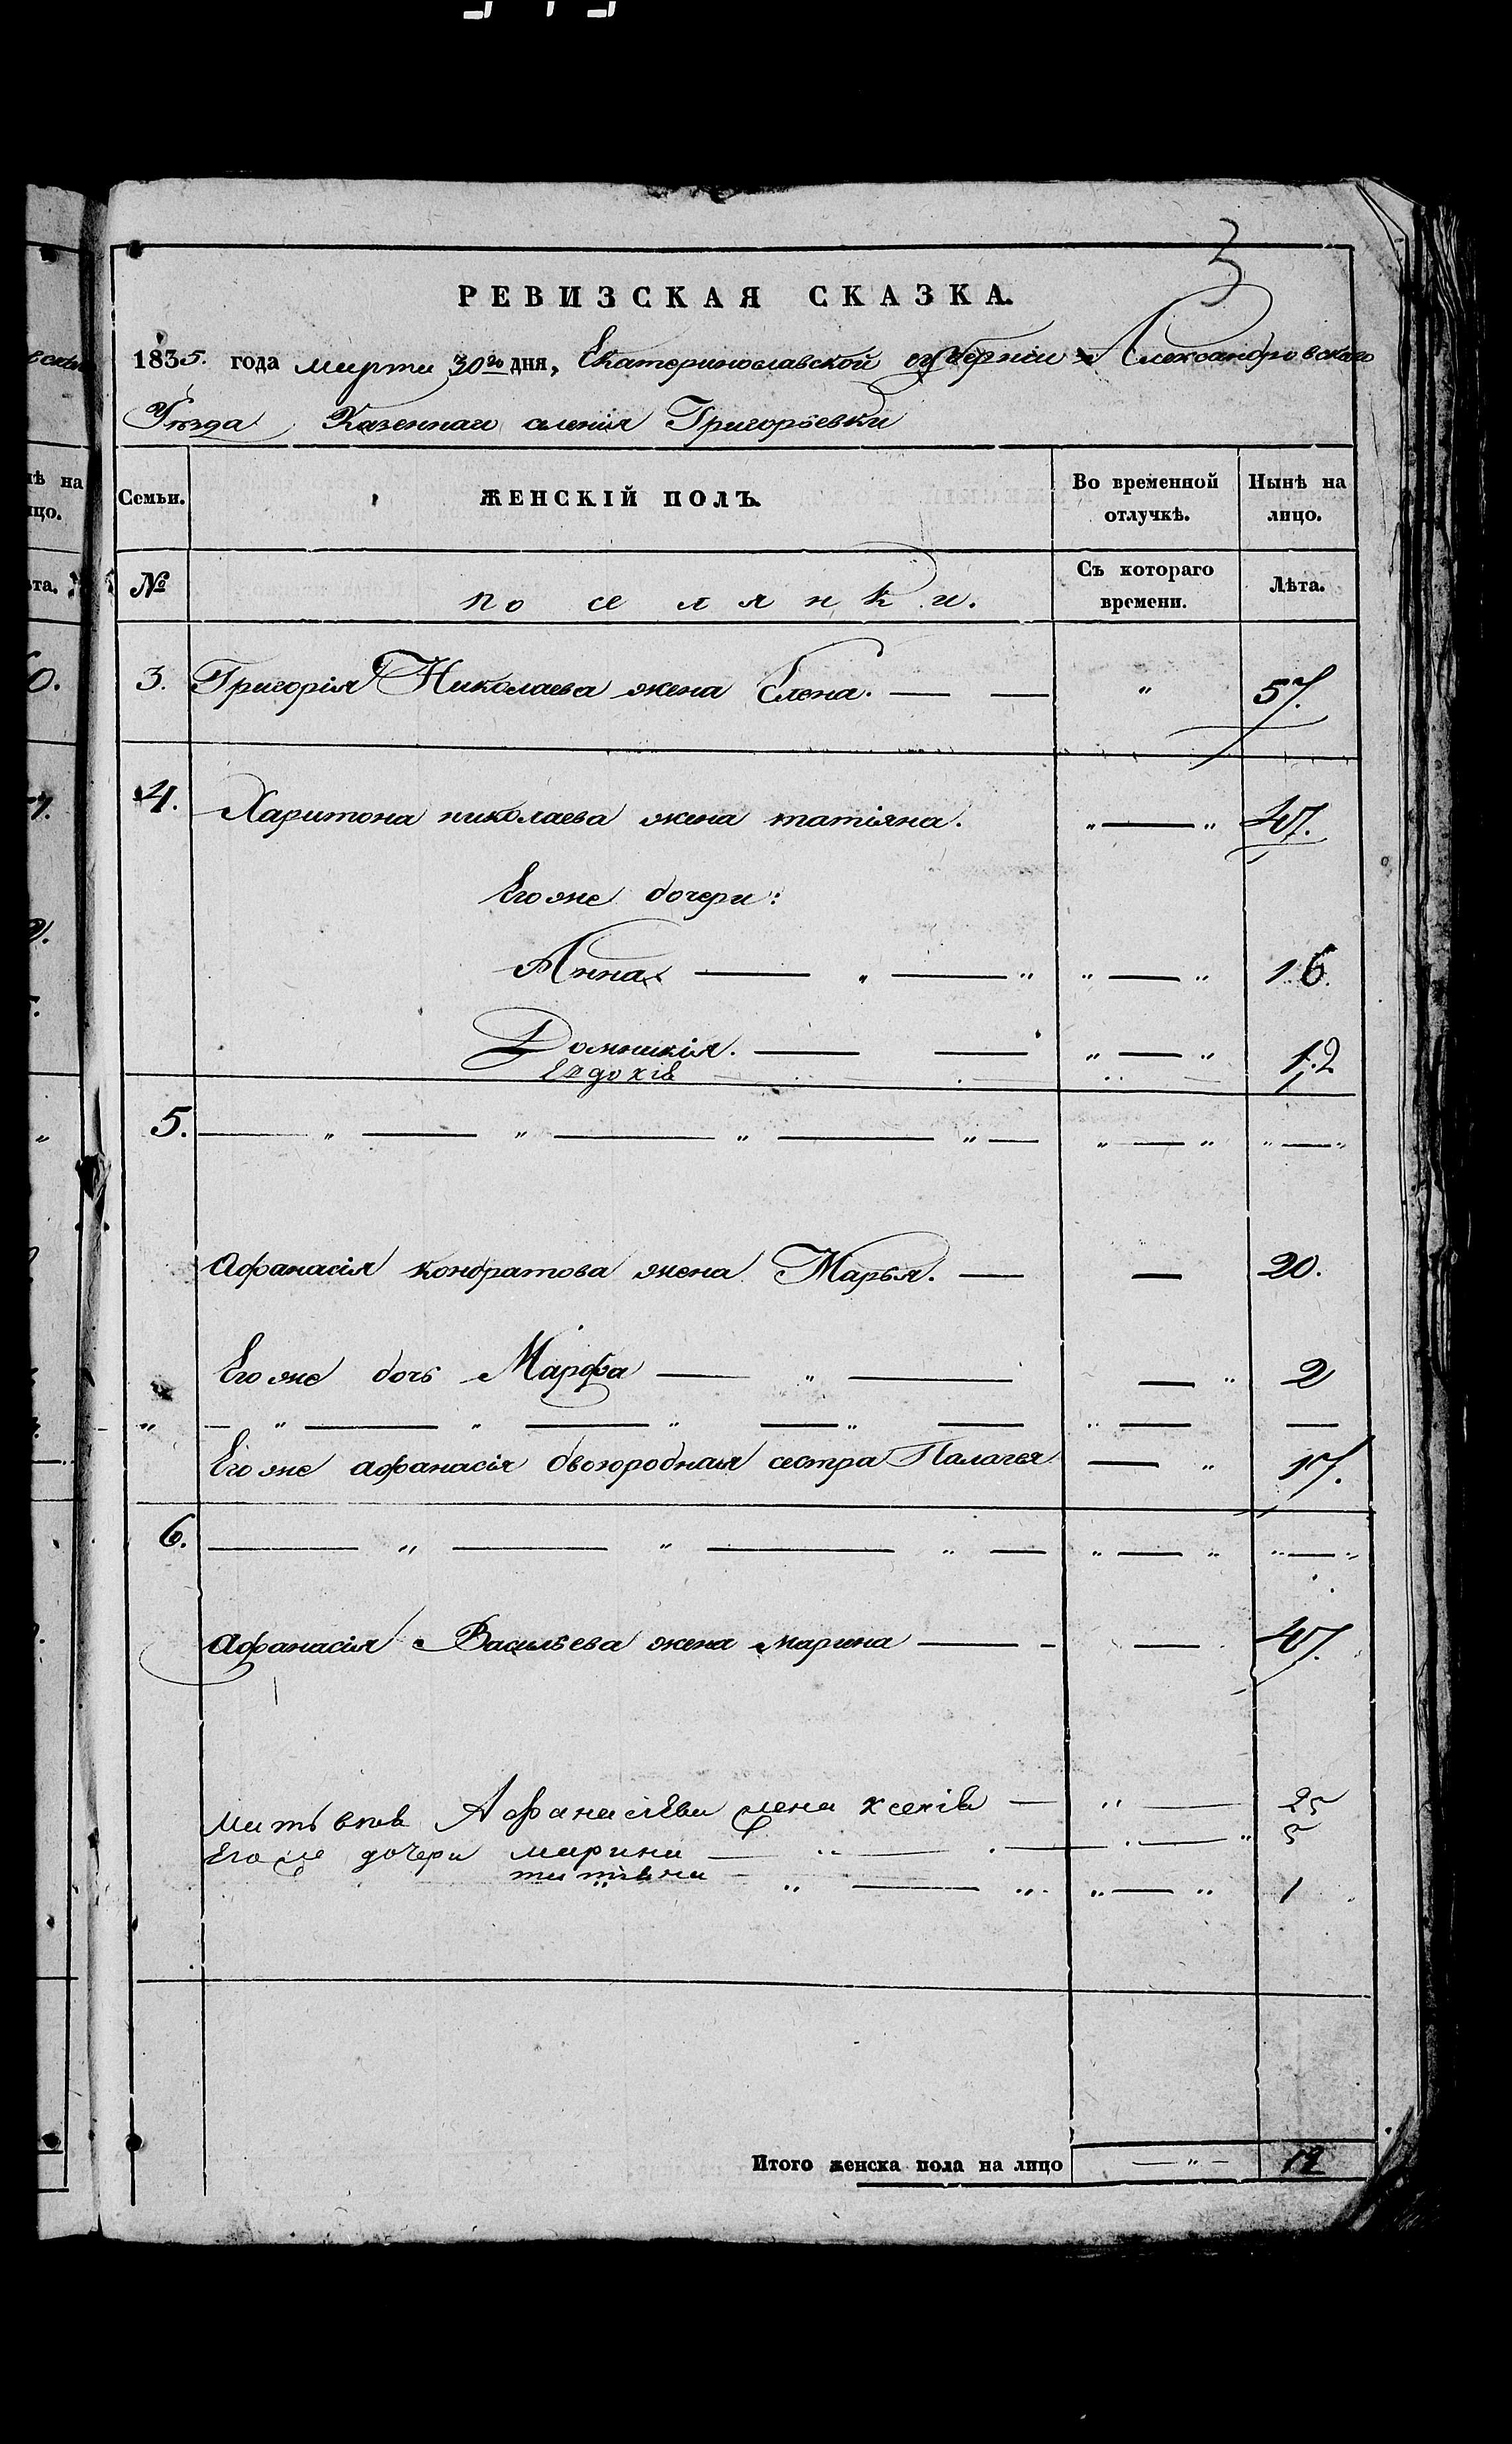 3
РЕВИЗСКАЯ СКАЗКА.
1835. года марта 30го дня, Екатеринославской губерніи Александровскаго
Уѣзда Казеннаго селенія Григорьевки
Семьи. ЖЕНСКІЙ ПОЛЪ. Во временной отлучкѣ. Нынѣ на лицо.
№ поселянки. Съ котораго времени. Лѣта.
3. Григорія Николаева жена Елена. — — " 57.
4. Харитона николаева жена татіяна. " — " 47.
Его же дочери:
Анна — " — " " — " 16.
Домникія. — — " — " 12
Евдокія
5. — " — " — " — " — " — " " — "
Афанасія кондратова жена Марья. — — 20.
Его же дочь Марфа — " — — " 2
" — " — " — " — " — " — —
Его же афанасія двоюродная сестра Палагея — " 17.
6. — " — " — " — " — " " — "
Афанасія Васильева жена марина — - — 47.
Матвѣя Афанасіева жена ксенія — " — 25
Его же дочери марина — " — . — " — " 5
татіяна — " — " " — " 1
Итого женска пола на лицо — " — 12